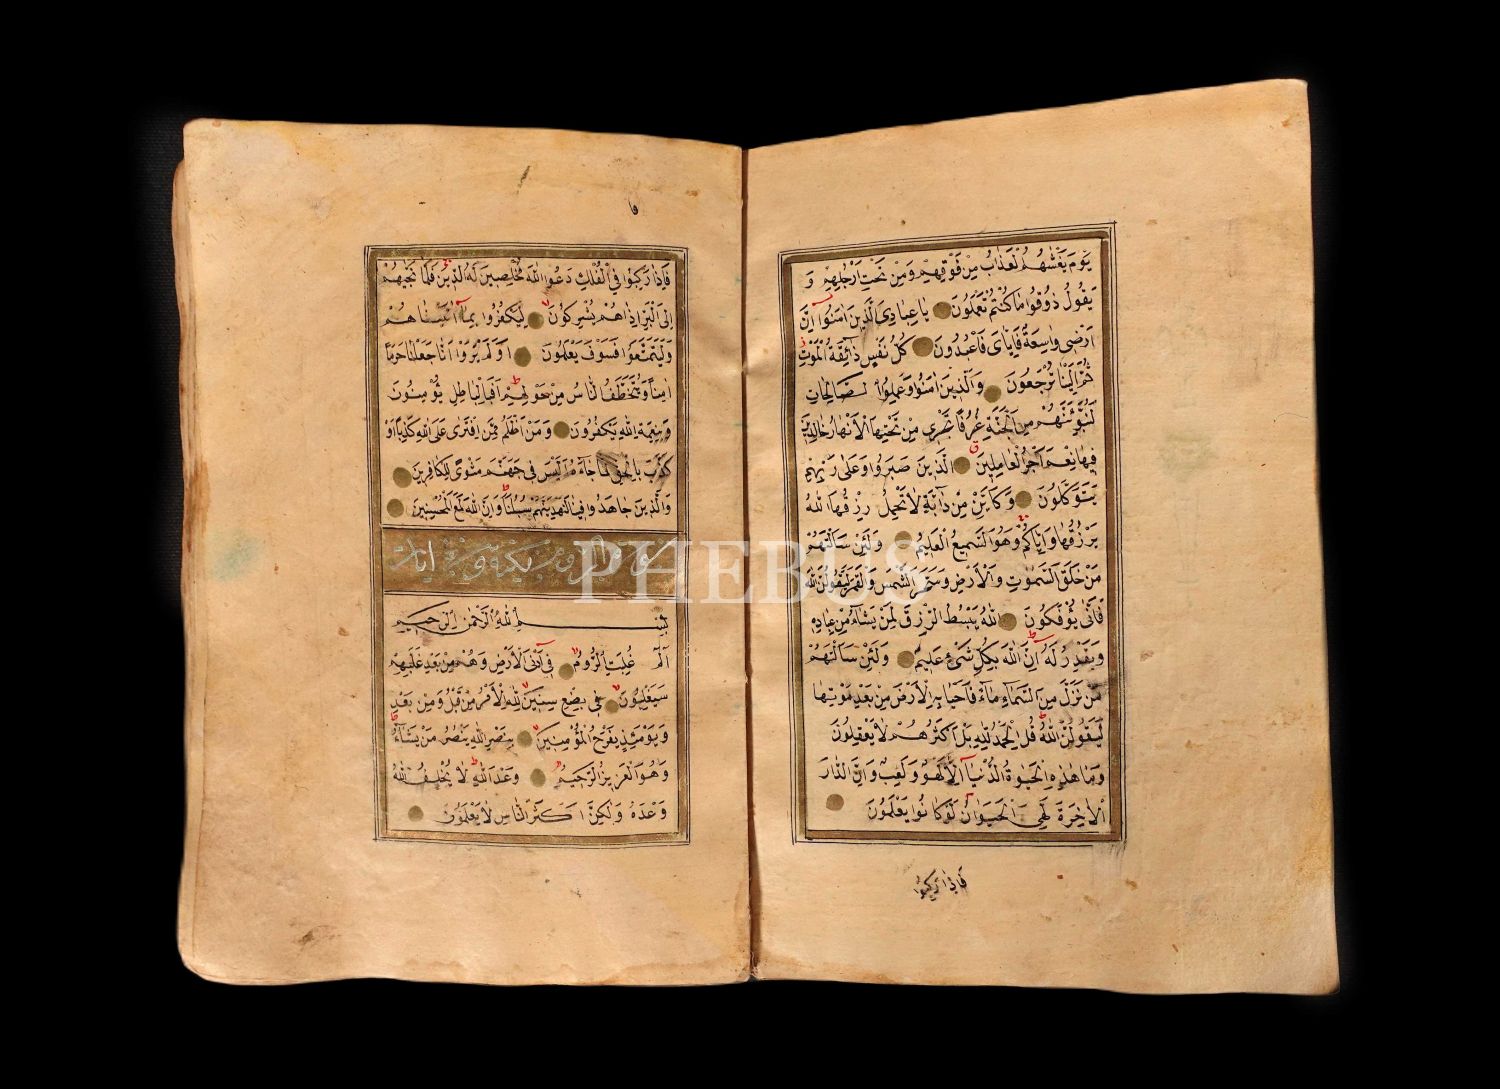 يَوْمَ يَغْشٰيهُمُ الْعَذَابُ مِنْ فَوْقِهِمْ وَمِنْ تَحْتِ اَرْجُلِهِمْ وَ
يَقُولُ ذُوقُوا مَا كُنْتُمْ تَعْمَلُونَ يَا عِبَادِىَ الَّذِينَ اٰمَنُوا اِنَّ
اَرْضِى وَاسِعَةٌ فَاِيَّاىَ فَاعْبُدُونَ كُلُّ نَفْسٍ ذَائِقَةُ الْمَوْتِ
ثُمَّ اِلَيْنَا تُرْجَعُونَ وَالَّذِينَ اٰمَنُوا وَعَمِلُوا الصَّالِحَاتِ
لَنُبَوِّئَنَّهُمْ مِنَ الْجَنَّةِ غُرَفًا تَجْرِى مِنْ تَحْتِهَا الْاَنْهَارُ خَالِدِينَ
فِيهَا نِعْمَ اَجْرُ الْعَامِلِينَ الَّذِينَ صَبَرُوا وَعَلٰى رَبِّهِمْ
يَتَوَكَّلُونَ وَكَاَيِّنْ مِنْ دَابَّةٍ لَا تَحْمِلُ رِزْقَهَا اللّٰهُ
يَرْزُقُهَا وَاِيَّاكُمْ وَهُوَ السَّمِيعُ الْعَلِيمُ وَلَئِنْ سَاَلْتَهُمْ
مَنْ خَلَقَ السَّمٰوَاتِ وَالْاَرْضَ وَسَخَّرَ الشَّمْسَ وَالْقَمَرَ لَيَقُولُنَّ اللّٰهُ
فَاَنّٰى يُؤْفَكُونَ اَللّٰهُ يَبْسُطُ الرِّزْقَ لِمَنْ يَشَاءُ مِنْ عِبَادِهِ
وَيَقْدِرُ لَهُ اِنَّ اللّٰهَ بِكُلِّ شَىْءٍ عَلِيمٌ وَلَئِنْ سَاَلْتَهُمْ
مَنْ نَزَّلَ مِنَ السَّمَاءِ مَاءً فَاَحْيَا بِهِ الْاَرْضَ مِنْ بَعْدِ مَوْتِهَا
لَيَقُولُنَّ اللّٰهُ قُلِ الْحَمْدُ لِلّٰهِ بَلْ اَكْثَرُهُمْ لَا يَعْقِلُونَ
وَمَا هٰذِهِ الْحَيٰوةُ الدُّنْيَا اِلَّا لَهْوٌ وَلَعِبٌ وَاِنَّ الدَّارَ
الْاٰخِرَةَ لَهِىَ الْحَيَوَانُ لَوْ كَانُوا يَعْلَمُونَ
فَاِذَا رَكِبُوا
فَاِذَا رَكِبُوا فِى الْفُلْكِ دَعَوُا اللّٰهَ مُخْلِصِينَ لَهُ الدِّينَ فَلَمَّا نَجّٰيهُمْ
اِلَى الْبَرِّ اِذَا هُمْ يُشْرِكُونَ لِيَكْفُرُوا بِمَا اٰتَيْنَاهُمْ
وَلِيَتَمَتَّعُوا فَسَوْفَ يَعْلَمُونَ اَوَلَمْ يَرَوْا اَنَّا جَعَلْنَا حَرَمًا
اٰمِنًا وَيُتَخَطَّفُ النَّاسُ مِنْ حَوْلِهِمْ اَفَبِالْبَاطِلِ يُؤْمِنُونَ
وَبِنِعْمَةِ اللّٰهِ يَكْفُرُونَ وَمَنْ اَظْلَمُ مِمَّنِ افْتَرٰى عَلَى اللّٰهِ كَذِبًا اَوْ
كَذَّبَ بِالْحَقِّ لَمَّا جَاءَهُ اَلَيْسَ فِى جَهَنَّمَ مَثْوًى لِلْكَافِرِينَ
وَالَّذِينَ جَاهَدُوا فِينَا لَنَهْدِيَنَّهُمْ سُبُلَنَا وَاِنَّ اللّٰهَ لَمَعَ الْمُحْسِنِينَ
سورة الروم مكية وهى ايات
بِسْمِ اللّٰهِ الرَّحْمٰنِ الرَّحِيمِ
الٓمٓ غُلِبَتِ الرُّومُ فِى اَدْنَى الْاَرْضِ وَهُمْ مِنْ بَعْدِ غَلَبِهِمْ
سَيَغْلِبُونَ فِى بِضْعِ سِنِينَ لِلّٰهِ الْاَمْرُ مِنْ قَبْلُ وَمِنْ بَعْدُ
وَيَوْمَئِذٍ يَفْرَحُ الْمُؤْمِنُونَ بِنَصْرِ اللّٰهِ يَنْصُرُ مَنْ يَشَاءُ
وَهُوَ الْعَزِيزُ الرَّحِيمُ وَعْدَ اللّٰهِ لَا يُخْلِفُ اللّٰهُ
وَعْدَهُ وَلٰكِنَّ اَكْثَرَ النَّاسِ لَا يَعْلَمُونَ
PHEBUS